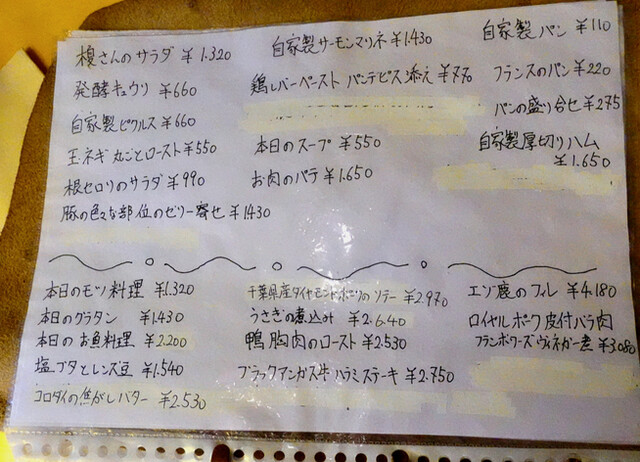 榎さんのサラダ ¥1.320
発酵キュウリ ¥660
自家製ピクルス ¥660
玉ネギ丸ごとロースト ¥550
根セロリのサラダ ¥990
豚の色々な部位のゼリー寄せ ¥1430
自家製サーモンマリネ ¥1.430
鶏レバーペースト パンデピス添え ¥770
本日のスープ ¥550
お肉のパテ ¥1.650
自家製パン ¥110
フランスのパン ¥220
パンの盛り合せ ¥275
自家製厚切りハム
¥1.650
本日のモツ料理 ¥1.320
本日のグラタン ¥1430
本日のお魚料理 ¥2.200
塩ブタとレンズ豆 ¥1.540
コロダイの焦がしバター ¥2.530
千葉県産ダイヤモンドポークのソテー ¥2.970
うさぎの煮込み ¥2.640
鴨胸肉のロースト ¥2.530
ブラックアンガス牛ハラミステーキ ¥2.750
エゾ鹿のフィレ ¥4.180
ロイヤルポーク皮付バラ肉
フランボワーズヴィネガー煮 ¥3.080